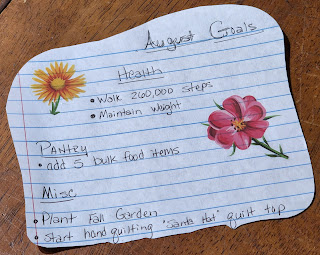 August Goals
Health
• Walk 260,000 steps
• Maintain weight
Pantry
• add 5 bulk food items
Misc
• Plant Fall Garden
• Start hand quilting "Santa Hat" quilt top